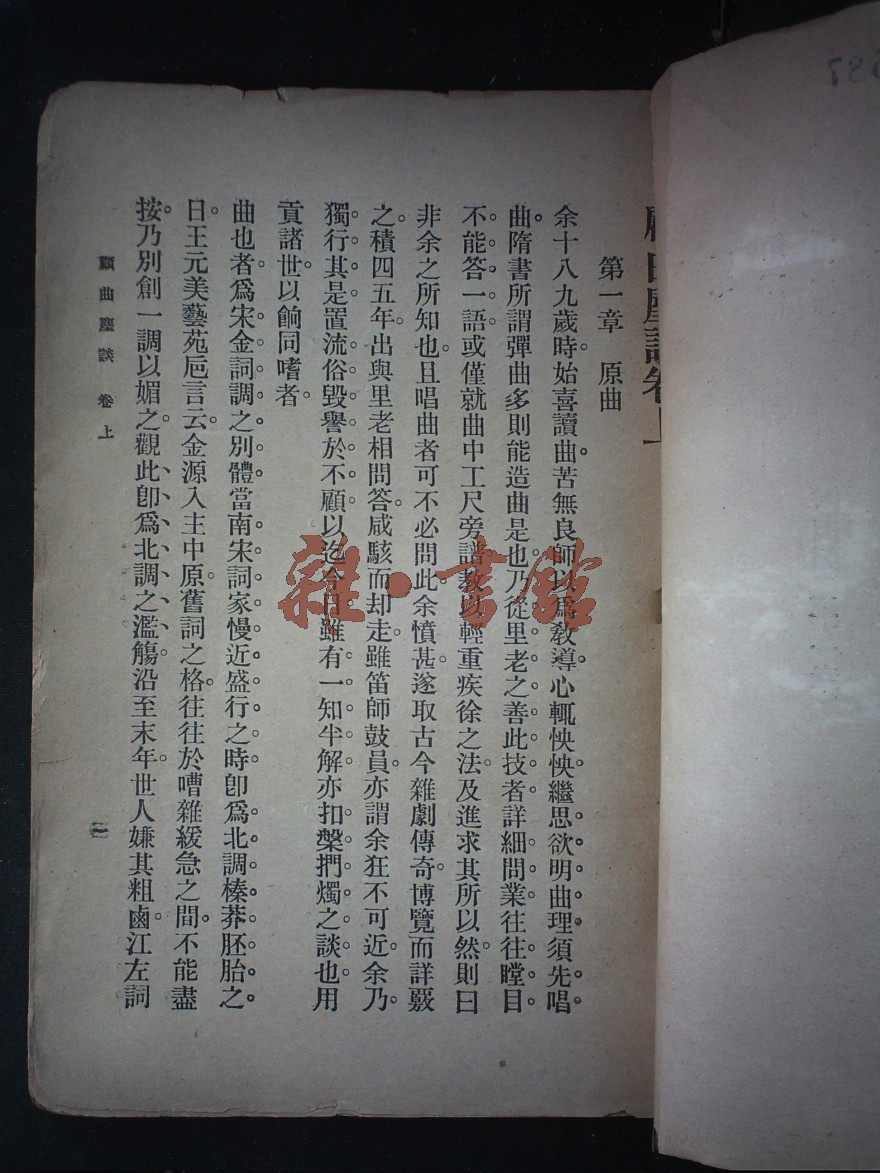 顧曲麈談卷上
第一章　原曲
余十八九歲時始喜讀曲。苦無良師以爲敎導。心輒怏怏繼思欲明曲理須先唱
曲。隋書所謂彈曲多則能造曲是也。乃從里老之善此技者詳細問業往往瞠目
不能答一語或僅就曲中工尺旁譜敎以輕重疾徐之法。及進求其所以然。則曰
非余之所知也。且唱曲者可不必問此。余憤甚。遂取古今雜劇傳奇。博覽而詳覈
之。積四五年。出與里老相問答。咸駭而却走。雖笛師鼓員。亦謂余狂不可近。余乃。
獨行其是置流俗毀譽於不顧。以迄今日雖有一知半解亦扣槃捫燭之談也。用
貢諸世以餉同嗜者。
曲也者。爲宋金詞調之別體當南宋詞家慢近盛行之時卽爲北調榛莽胚胎之。
日。王元美藝苑巵言云。金源入主中原。舊詞之格。往往於嘈雜緩急之間。不能盡
按。乃別創一調以媚之。觀此、卽爲北調之濫觴。沿至末年。世人嫌其粗鹵。江左詞
顧曲麈談　卷上
一
雜·書館